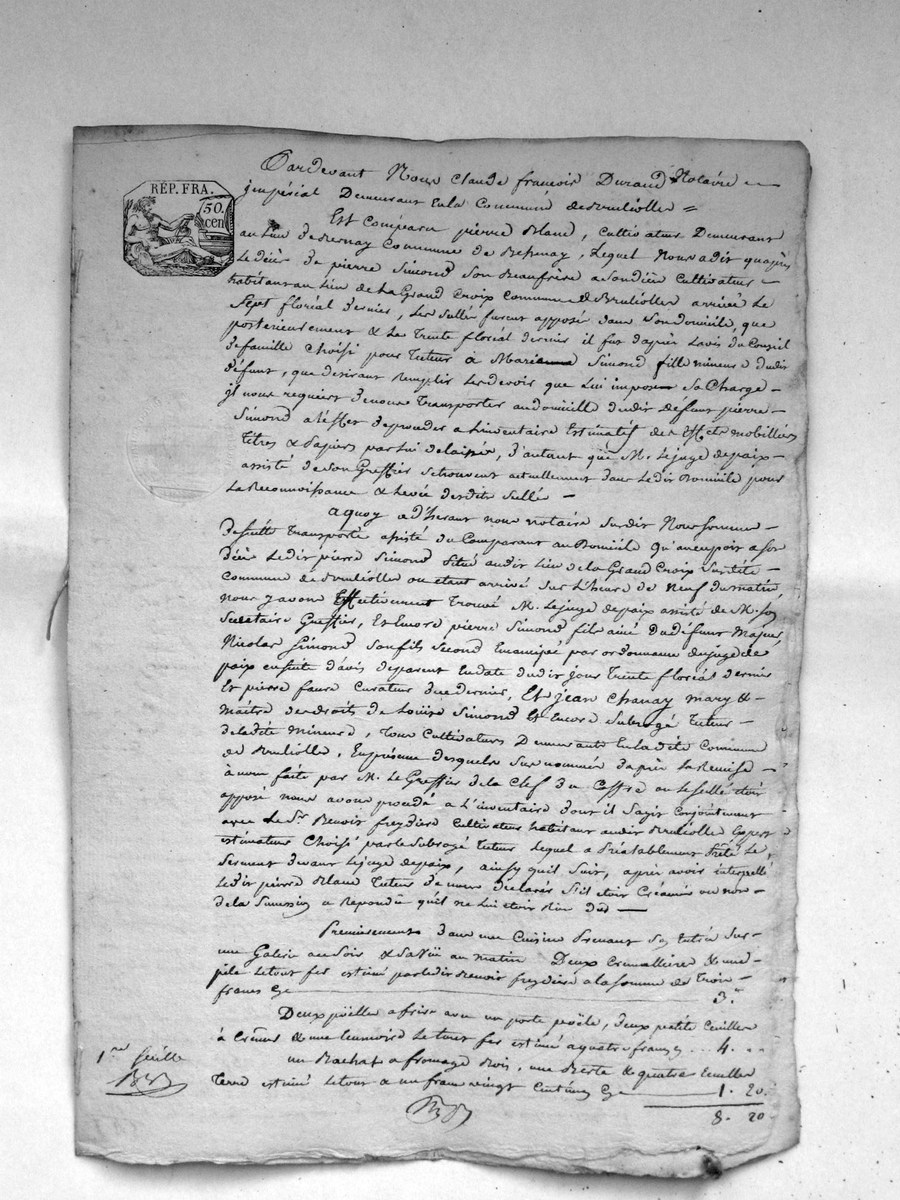 RÉP. FRA.
50.
cen
Pardevant Nous Claude françois Durand Notaire
jmpérial Demeurant En la Commune de Brullioller
Est Comparu pierre Blanc, Cultivateur Demeurant
au Lieu de Commune de Lequel Nous a dit qu'après
Le décès de pierre Simond Son Beaufrère a Son décè Cultivateur
habitant au Lieu de La Grand Croix Commune de Brulioller arrivé Le
Sept floréal dernier, Les Sellés furent apposé dans Son domicile, que
postérieurement & Le Trente floréal dernier il fut d'après L'avis du Conseil
de famille Choisi pour Tuteur à Marianne Simond fille mineure dudit
défunt, que désirant Remplir Les devoir que Lui impose Sa Charge
jl nous requiert de nous Transporter au domicille dudit déffunt pierre
Simond a l'effet de procéder a L'inventaire Estimatif des Effets mobilliers
Titres & Papiers par Lui délaissé, d'autant que M. Le juge de paix
assisté de Son Greffier se trouvent actuellement dans Ledit Domicile pour
La Reconnoissance & Levée desdits Sellé
a quoy adhérant nous notaire Susdit Nous Sommes
de suitte Transporté assisté du Comparant au Domicile qu'avoit a Son
décè Ledit pierre Simond Situé audit Lieu de la Grand Croix Susdite
Commune de Brulioller ou étant arrivé Sur L'heure de Neuf du matin,
nous y avons Effectivement Trouvé M. Le juge de paix assisté de M. Son
Secrétaire Greffier, Et Encore pierre Simond fils ainé du défunt Majeur,
Nicolas Simond Son fils Second Emancipé par ordonnance du juge de
paix ensuite d'avis de parent En date dudit jour Trente floréal dernier
Et pierre faure Curateur de ce dernier, Et jean Chanay mary &
Maître des droits de Louise Simond Et Encore Subrogé Tuteur
de ladite mineure, Tous Cultivateurs Demeurants En ladite Commune
de Brulliolle, En présence desquels Sus nommés d'après La Remise
à nous faite par M. Le Greffier de la Clef du Coffre ou Le Sellé étoit
apposé nous avons procédé a L'inventaire dont il S'agit Conjointement
avec Le Sr. Benoit freydière Cultivateur habitant audit Brulliolle Expert
estimateur Choisi par le Subrogé tuteur Lequel a Préalablement Prêté Le
Serment devant Le juge de paix, ainsy qu'il Suit, après avoir interpellé
Ledit pierre Blanc Tuteur de nous déclarer S'il étoit Créancier ou non
de la Succession a Répondu qu'il ne Lui étoit Rien Dud
Premièrement dans une Cuisine Prenant Son Entrée Sur
une Galerie au Soir & Sa Vüe au matin Deux Cremallière & une
pèle Le tout fer estimé par ledit Benoit freydière a la Somme de Trois
francs Cy 3. "
Deux poëlles a frire avec un porte poële, deux petite Ceuiller
à & une Le tout fer estimé a quatre francs ... 4. ..
un Rachat a fromage Bois, une Berte & quatre Ecuelles
Terre estimé Le tout a un franc vingt Centimes Cy 1. 20.
8. 20
1re feuille